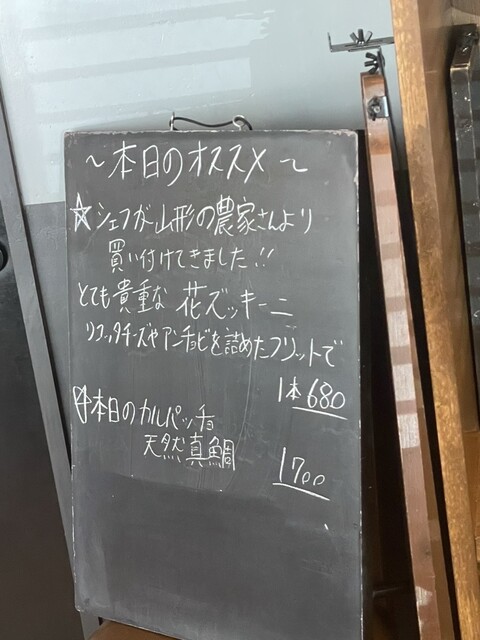 ～本日のオススメ～
☆シェフが山形の農家さんより
買い付けてきました!!
とても貴重な 花ズッキーニ
リコッタチーズやアンチョビを詰めたフリットで
1本 680
本日のカルパッチョ
天然真鯛
1700